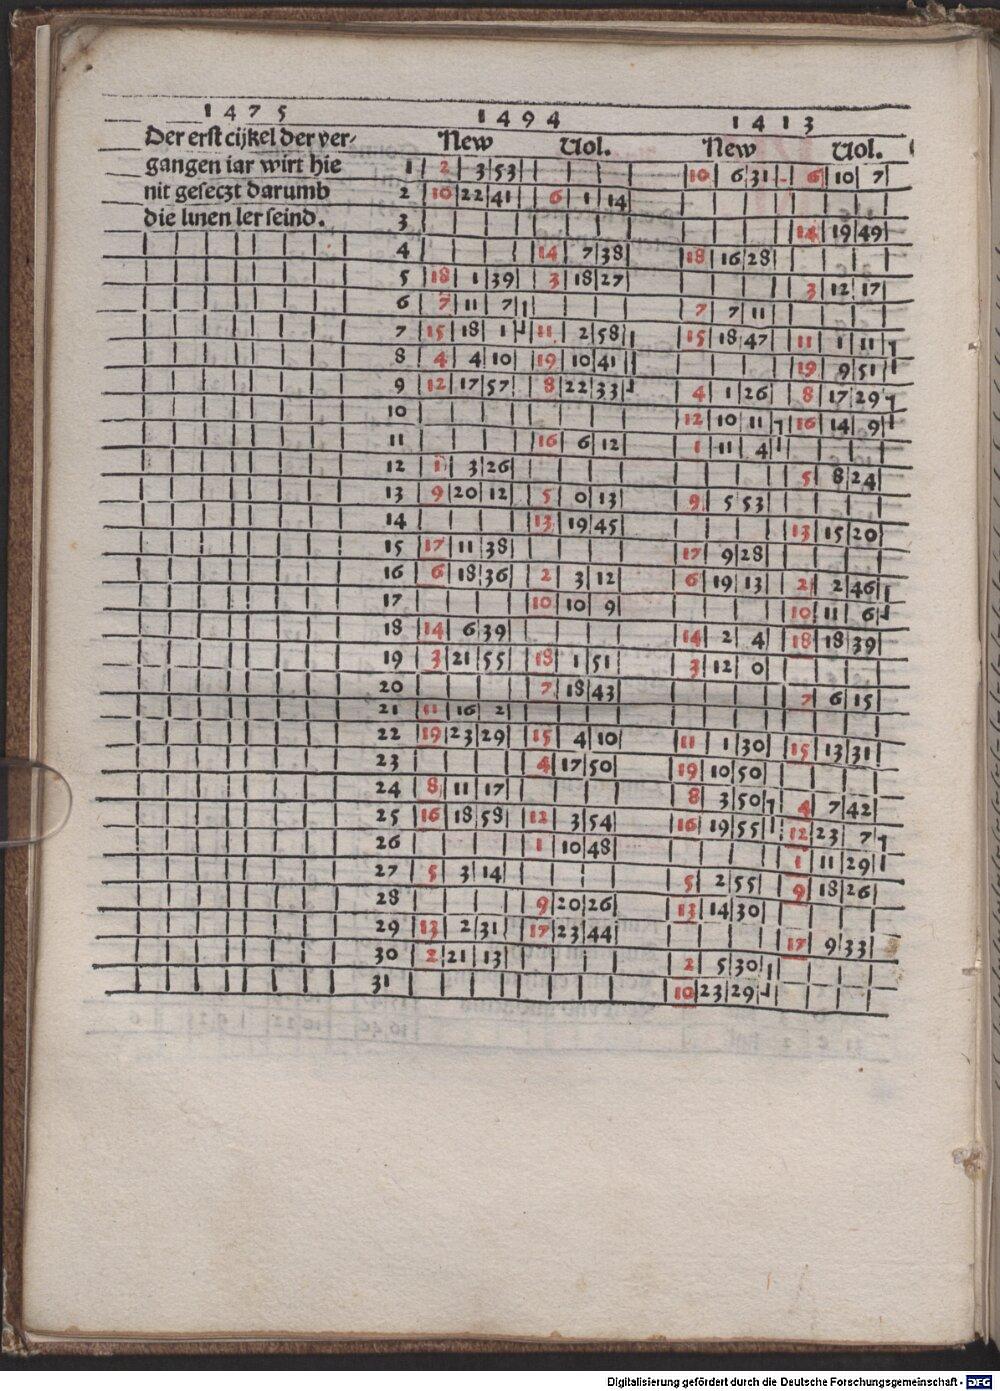 1475 1494 1413
Der erst cijkel der ver-
gangen iar wirt hie
nit geseczt darumb
die linen ler seind.
New Vol. New Vol.
1 2 3 53 10 6 31 6 10 7
2 10 22 41 6 1 14
3 14 19 49
4 14 7 38 18 16 28
5 18 1 39 3 18 27 3 12 17
6 7 11 7 7 7 11
7 15 18 1 11 2 58 15 18 47 11 1 11
8 4 4 10 19 10 41 19 9 51
9 12 17 57 8 22 33 4 1 26 8 17 29
10 12 10 11 16 14 9
11 16 6 12 1 11 4
12 1 3 26 5 8 24
13 9 20 12 5 0 13 9 5 53
14 13 19 45 13 15 20
15 17 11 38 17 9 28
16 6 18 36 2 3 12 6 19 13 2 2 46
17 10 10 9 10 11 6
18 14 6 39 14 2 4 18 18 39
19 3 21 55 18 1 51 3 12 0
20 7 18 43 7 6 15
21 11 16 2
22 19 23 29 15 4 10 11 1 30 15 13 31
23 4 17 50 19 10 50
24 8 11 17 8 3 50 4 7 42
25 16 18 58 12 3 54 16 19 55 12 23 7
26 1 10 48 1 11 29
27 5 3 14 5 2 55 9 18 26
28 9 20 26 13 14 30
29 13 2 31 17 23 44 17 9 33
30 2 21 13 2 5 30
31 10 23 29
Digitalisierung gefördert durch die Deutsche Forschungsgemeinschaft - DFG